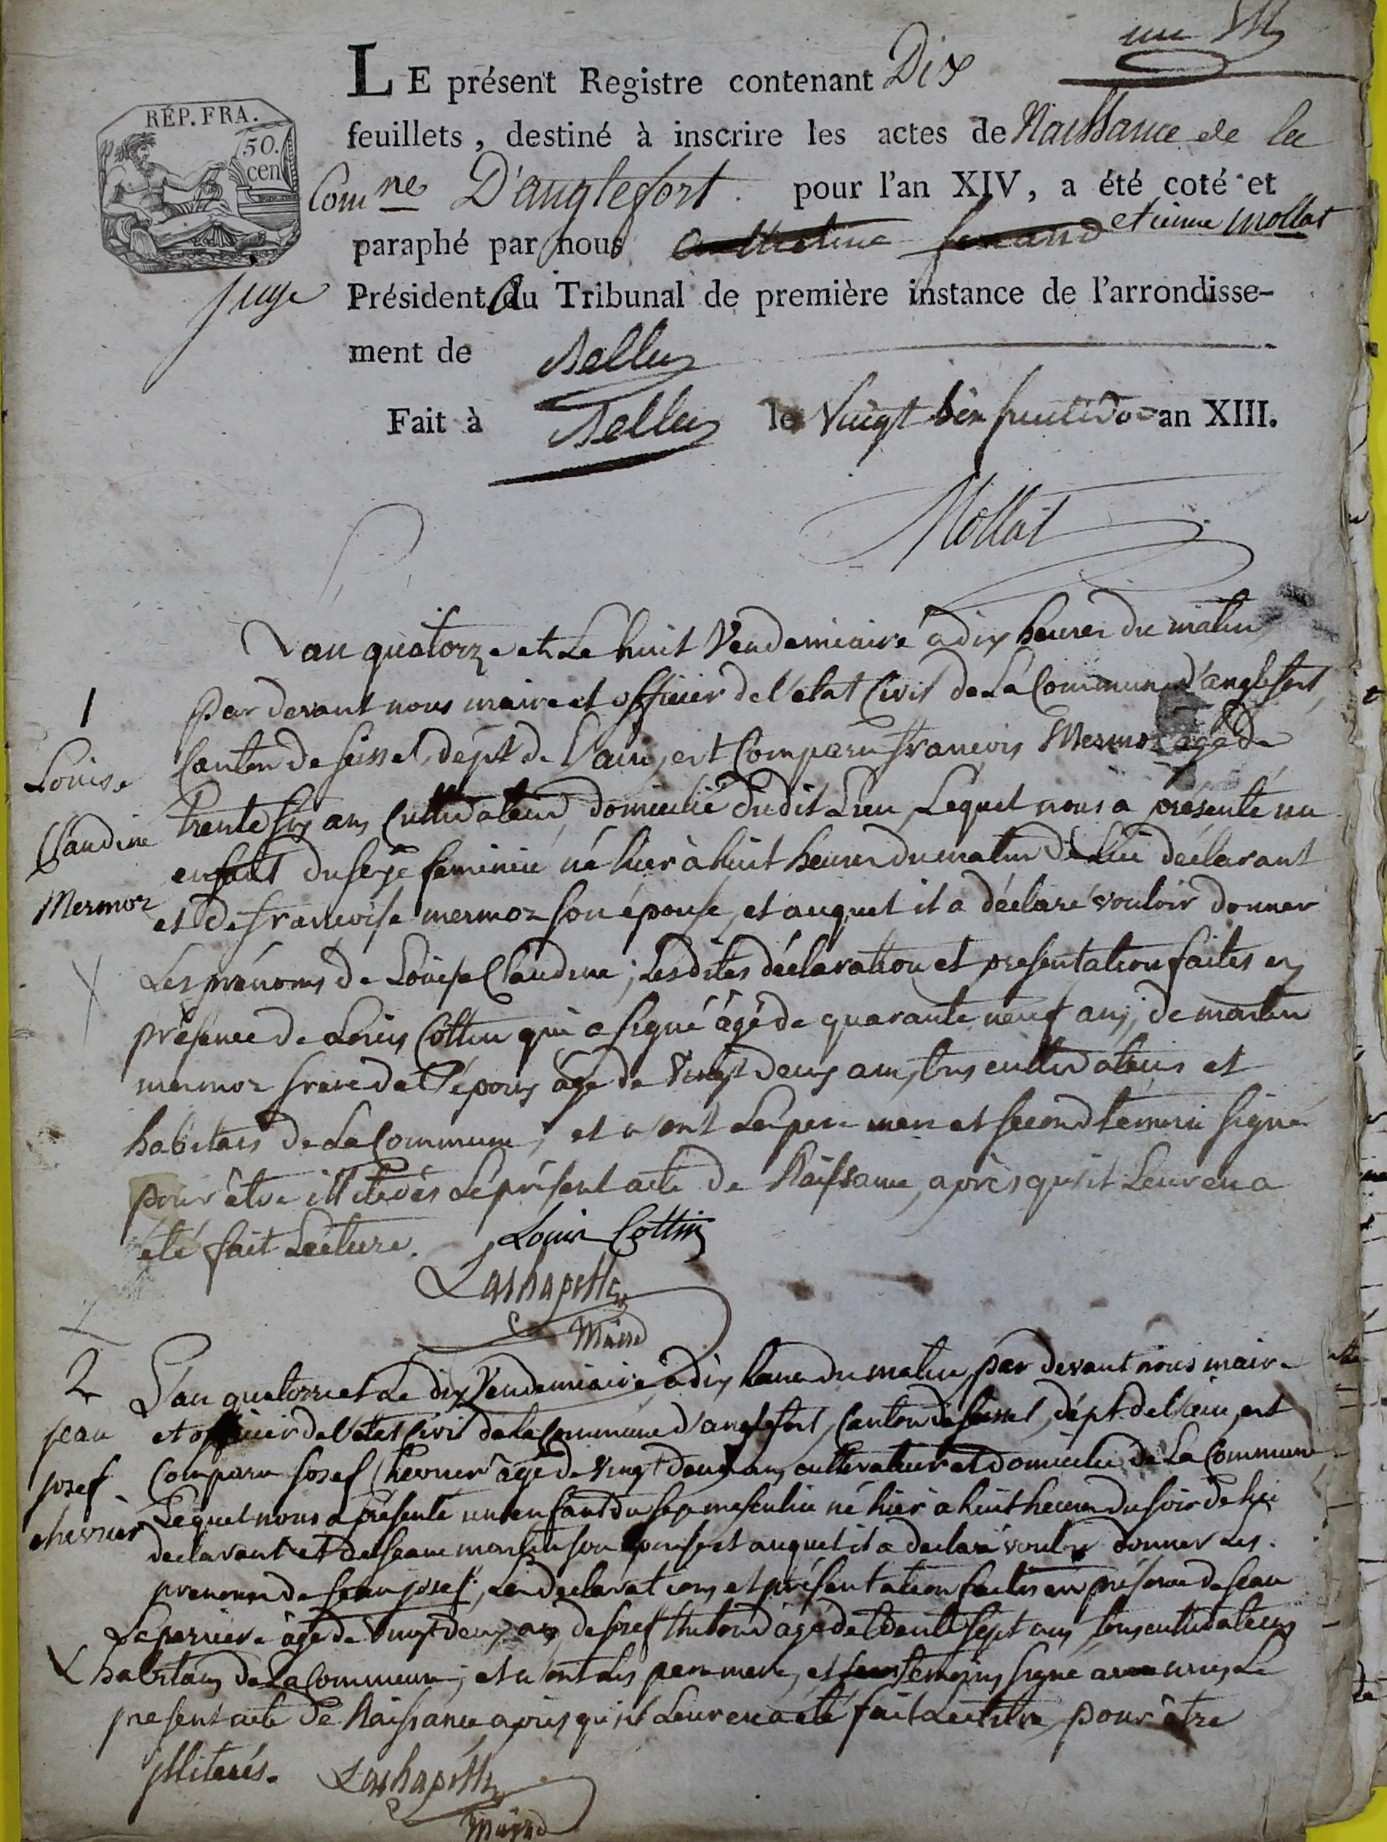 un
LE présent Registre contenant Dix
RÉP. FRA.
50.
cen
feuillets, destiné à inscrire les actes de Naissance de la
Comne D'anglefort pour l'an XIV, a été coté et
paraphé par nous etienne Mollat
juge Président du Tribunal de première instance de l'arrondisse-
ment de Belley
Fait à Belley le Vingt six fructidor an XIII.
Mollat
L'an quatorze et Le huit Vendemiaire à dix heures du matin
par devant nous maire et officier de l'état Civil de La Commune d'anglefort,
1
Canton de seissel, dépt de l'ain, est Comparu françois Mermoz agé de
Louise
trente six ans Cultivateur, domicilié dudit Lieu, Lequel nous a présenté un
Claudine
enfant du sexe feminin né hier à huit heures du matin de Lui déclarant
Mermoz
et de francoise mermoz son épouse, et auquel il a déclaré vouloir donner
Les prénoms de Louise Claudine; Lesdites déclaration et presentation faites en
présence de Louis Cottin qui a signé âgé de quarante neuf ans, de martin
mermoz frere de L'époux âgé de Vingt deux ans, tous cultivateurs et
habitans de La Commune; et n'ont Les pere mere et second temoin signé
pour être illiterés Le présent acte de Naissance, après qu'il Leur en a
été fait Lecture.
Louis Cottin
Lachapelle
Maire
2
L'an quatorze et Le dix Vendemiaire à dix heures du matin, par devant nous maire
jean
et officier de l'état Civil de La Commune d'anglefort, Canton de seissel, dépt de l'ain, est
josef
Comparu Josef Chevrier âgé de Vingt deux ans, cultivateur et domicilié de La Commune
chevrier
Lequel nous a présenté un enfant du sexe masculin né hier à huit heures du soir de Lui
declarant et de Jeane martin son épouse, et auquel il a declaré vouloir donner Les
prenoms de Jean josef; Les declarations et présentation faites en présence de Jean
Laperiere âgé de Vingt deux ans, de Josef âgé de trente sept ans, tous cultivateurs
habitans de La Commune; et n'ont Les pere mere, et temoins signé avec nous Le
present acte de Naissance après qu'il Leur en a été fait Lecture, pour être
illiterés.
Lachapelle
Maire